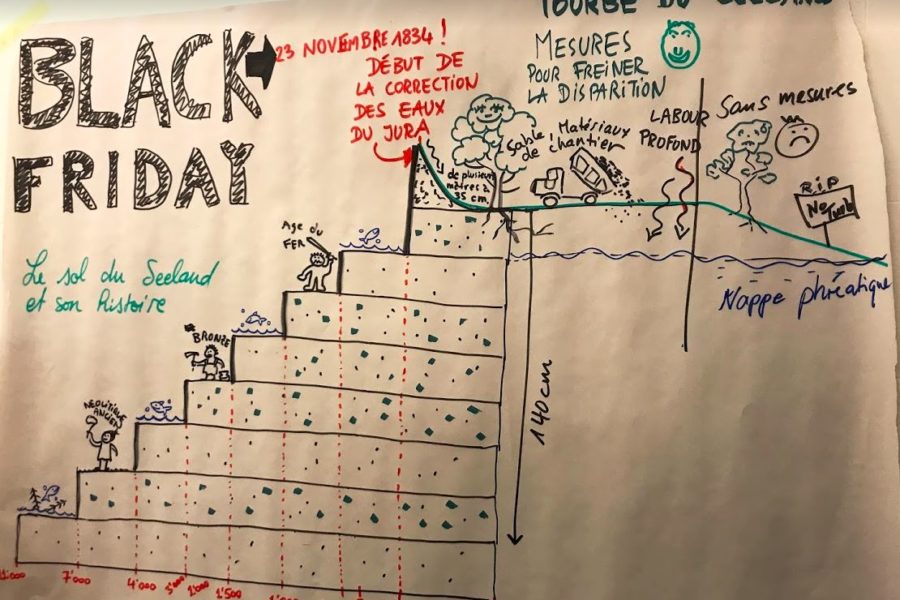 BLACK
FRIDAY
23 NOVEMBRE 1834!
DÉBUT DE
LA CORRECTION
DES EAUX
DU JURA
TOURBE DU SEELAND
MESURES
POUR FREINER
LA DISPARITION
LABOUR
PROFOND
Sans mesures
Sable,
Matériaux
de chantier
de plusieurs
mètres à
35 cm.
R.I.P
No Turb
Nappe phréatique
Le sol du Seeland
et son histoire
Age du
FER
BRONZE
NÉOLITIQUE
ANCIEN
140cm
7'000
4'000
1'500